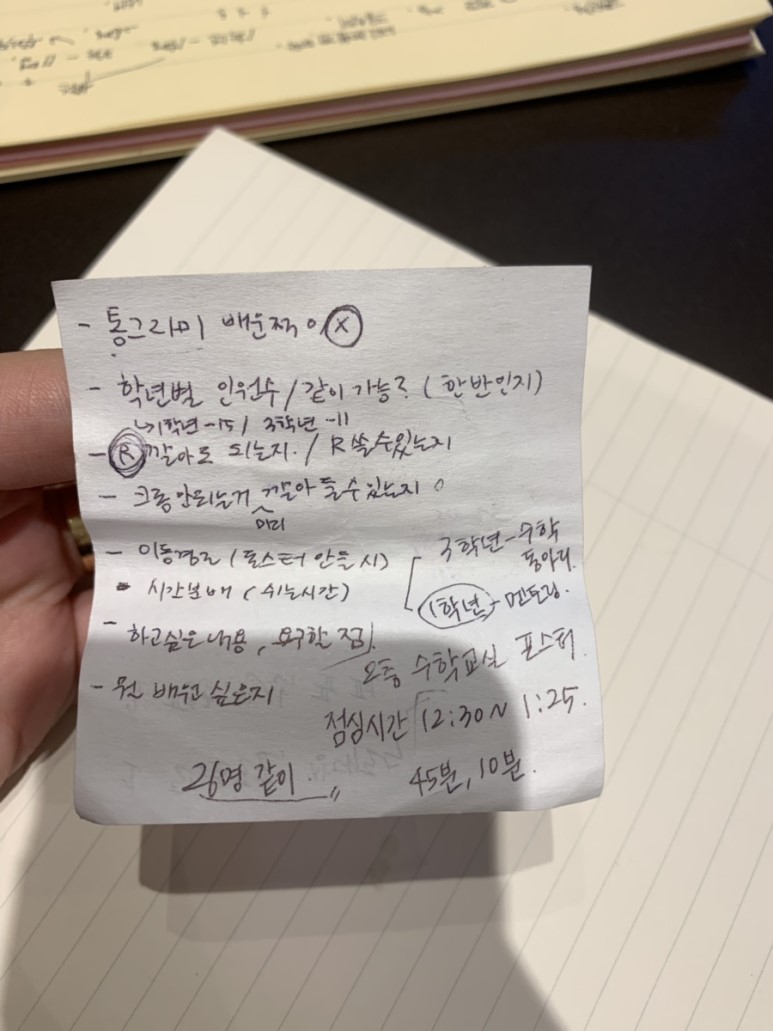 - 통그라미 배운적이 X
- 학년별 인원수 / 같이 가능? ( 한반인지)
↳ 1학년 -15 / 3학년 -11
- R 깔아도 되는지. / R 쓸 수 있는지
- 크롬 안되는거 깔아 둘 수 있는지
미리
- 이동경로 ( 포스터 만들 시)
3학년 - 수학
동아리.
• 시간분배 ( 쉬는시간)
1학년 - 멘토링.
- 하고싶은 내용, 요구할 점.
오층 수학교실 포스터.
- 뭔 배우고 싶은지
점심시간 12:30~ 1:25.
26명 같이.
45분, 10분.